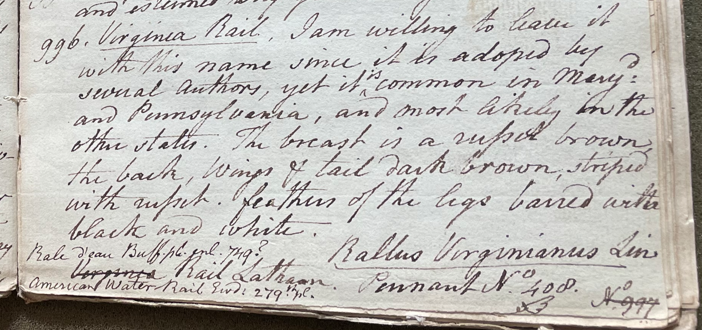 and esteemed
996. Virginea Rail. I am willing to leave it
with this name since it is adoped by
several Authors, yet it is common in Maryd:
and Pennsylvania, and most likely in the
other states. The breast is a rufset brown,
the back, Wings & tail dark brown, striped
with rufset. feathers of the legs barred with
black and white.
Rale d'eau Buff. pl. enl. 749?
Rallus Virginianus Lin
Virginia Rail Latham.
Pennant No 408.
American Water Rail Ewd: 279. pl.
No 997